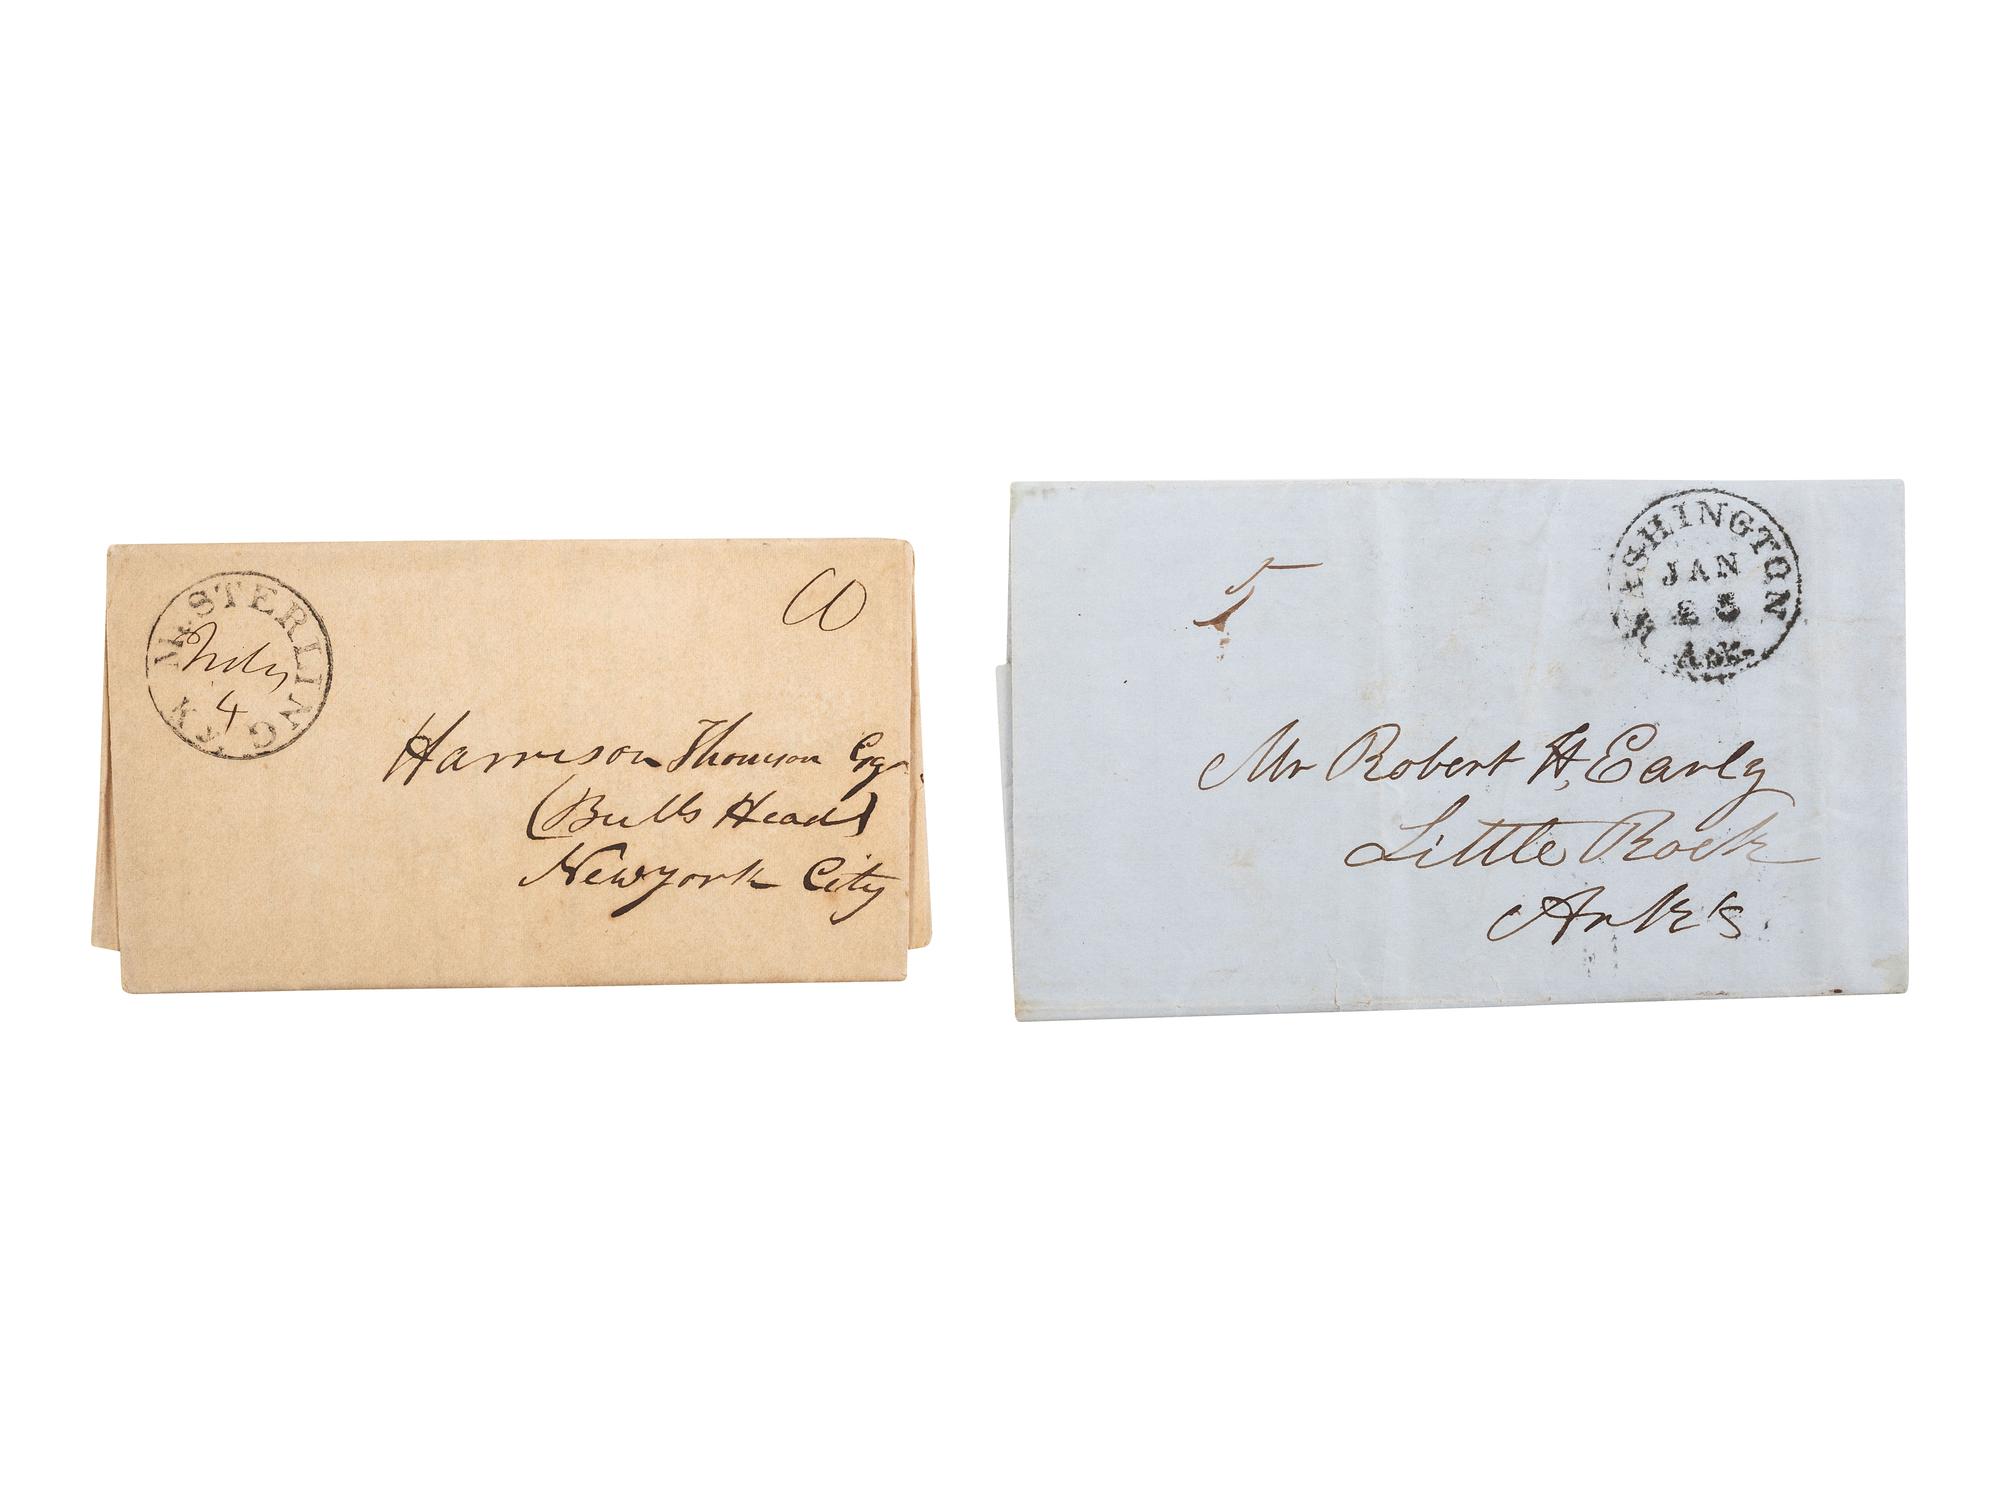 Mt STERLING KY
4
Harrison Thomson Esqr
(Bulls Head)
Newyork City
WASHINGTON
JAN
Ark.
5
Mr Robert H. Early
Little Rock
Ark's